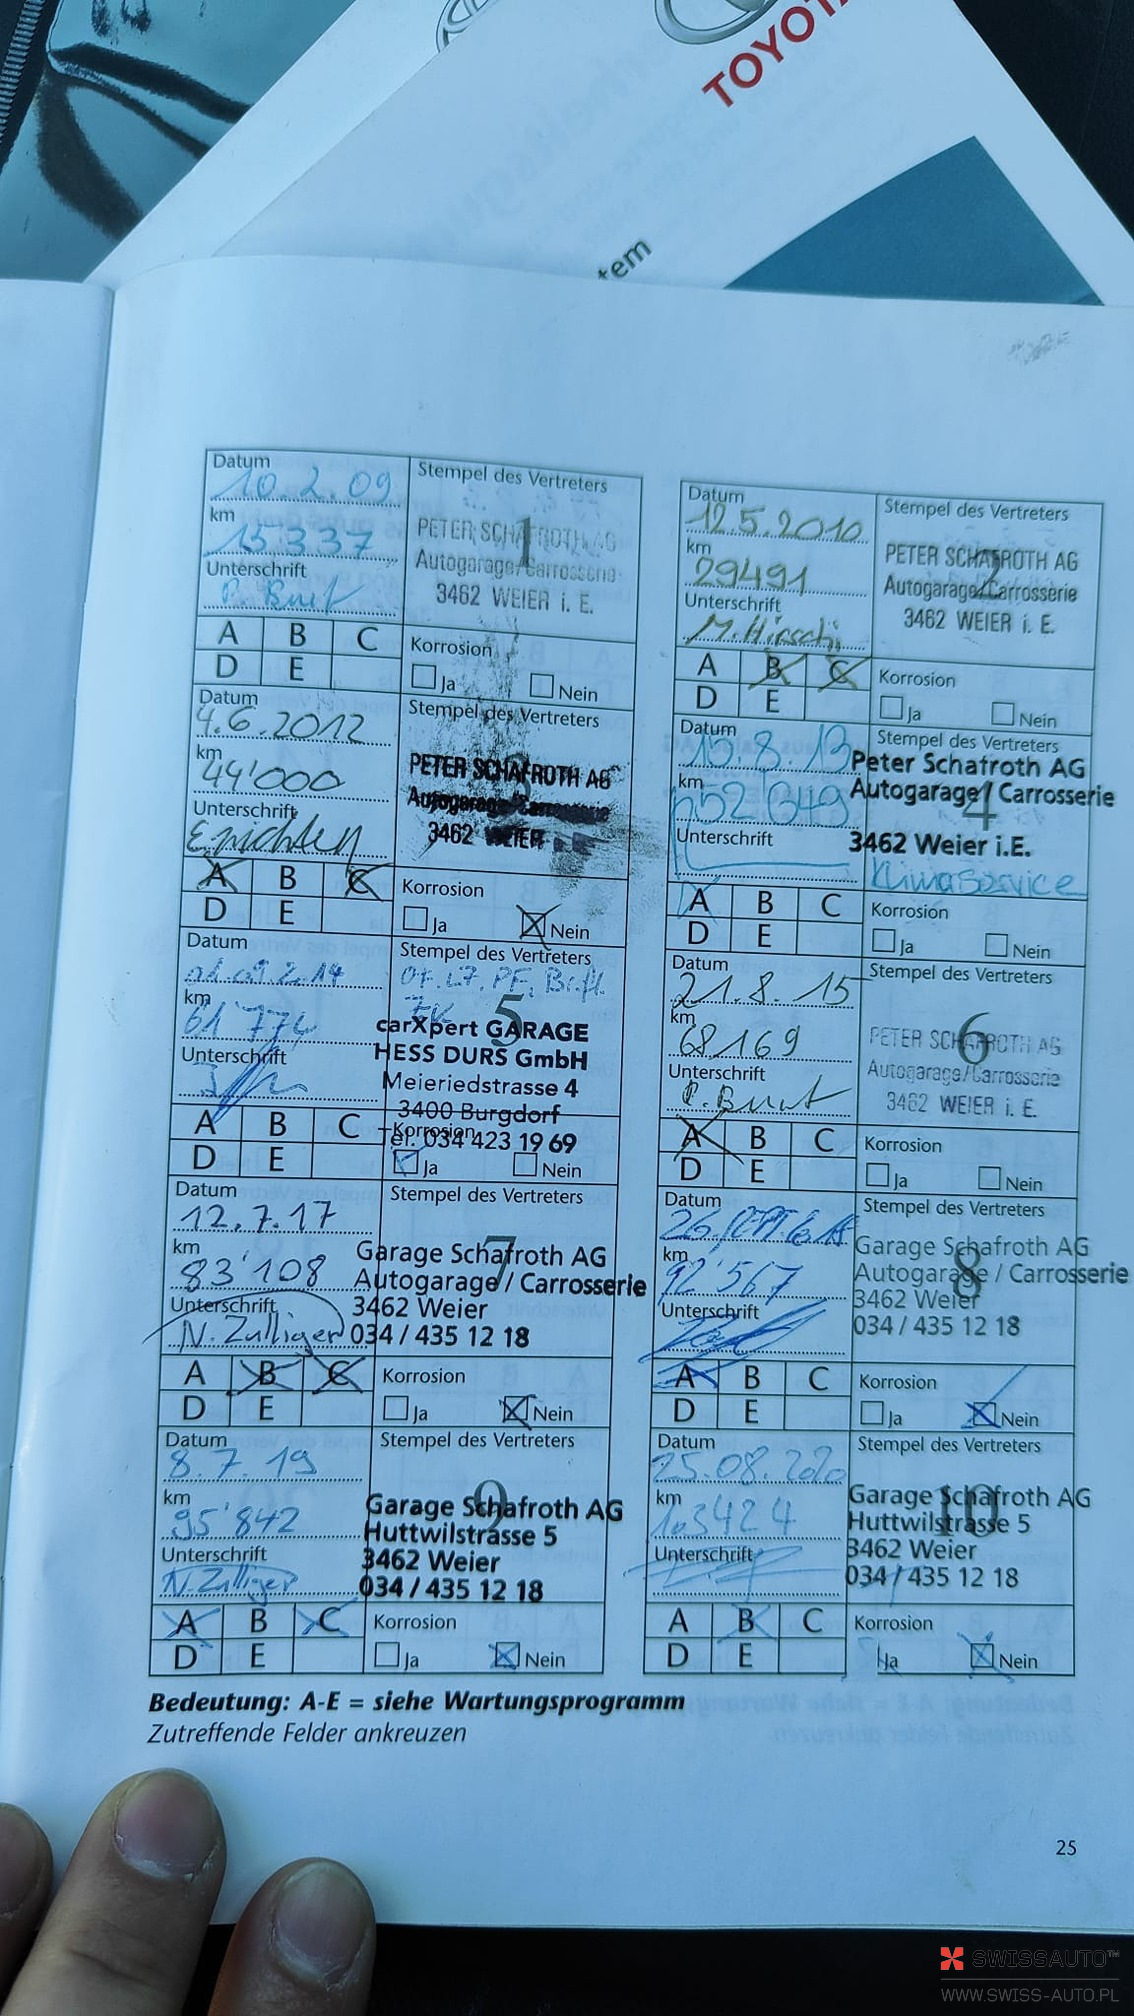 TOYOTA
tem
Datum
10.2.09
km
15337
Unterschrift
P. Burt
Stempel des Vertreters
1
PETER SCHAFROTH AG
Autogarage/Carrosserie
3462 WEIER i. E.
A B C
D E
Korrosion
Ja Nein
Datum
12.5.2010
km
29491
Unterschrift
M. Hirschi
Stempel des Vertreters
2
PETER SCHAFROTH AG
Autogarage/Carrosserie
3462 WEIER i. E.
A B C
D E
Korrosion
Ja Nein
Datum
4.6.2012
km
44'000
Unterschrift
Stempel des Vertreters
3
PETER SCHAFROTH AG
Autogarage/Carrosserie
3462 WEIER
A B C
D E
Korrosion
Ja Nein
Datum
15.8.13
km
52049
Unterschrift
Stempel des Vertreters
4
Peter Schafroth AG
Autogarage / Carrosserie
3462 Weier i.E.
Klimaservice
A B C
D E
Korrosion
Ja Nein
Datum
km
61'774
Unterschrift
Stempel des Vertreters
5
carXpert GARAGE
HESS DURS GmbH
Meieriedstrasse 4
3400 Burgdorf
Tel. 034 423 19 69
A B C
D E
Korrosion
Ja Nein
Datum
21.8.15
km
68169
Unterschrift
P. Burt
Stempel des Vertreters
6
PETER SCHAFROTH AG
Autogarage/Carrosserie
3462 WEIER i. E.
A B C
D E
Korrosion
Ja Nein
Datum
12.7.17
km
83'108
Unterschrift
N. Zulliger
Stempel des Vertreters
7
Garage Schafroth AG
Autogarage / Carrosserie
3462 Weier
034 / 435 12 18
A B C
D E
Korrosion
Ja Nein
Datum
km
92'567
Unterschrift
Stempel des Vertreters
8
Garage Schafroth AG
Autogarage / Carrosserie
3462 Weier
034 / 435 12 18
A B C
D E
Korrosion
Ja Nein
Datum
8.7.19
km
95'842
Unterschrift
N. Zulliger
Stempel des Vertreters
9
Garage Schafroth AG
Huttwilstrasse 5
3462 Weier
034 / 435 12 18
A B C
D E
Korrosion
Ja Nein
Datum
25.08.2020
km
103424
Unterschrift
Stempel des Vertreters
10
Garage Schafroth AG
Huttwilstrasse 5
3462 Weier
034 / 435 12 18
A B C
D E
Korrosion
Ja Nein
Bedeutung: A-E = siehe Wartungsprogramm
Zutreffende Felder ankreuzen
25
SWISSAUTO™
WWW.SWISS-AUTO.PL